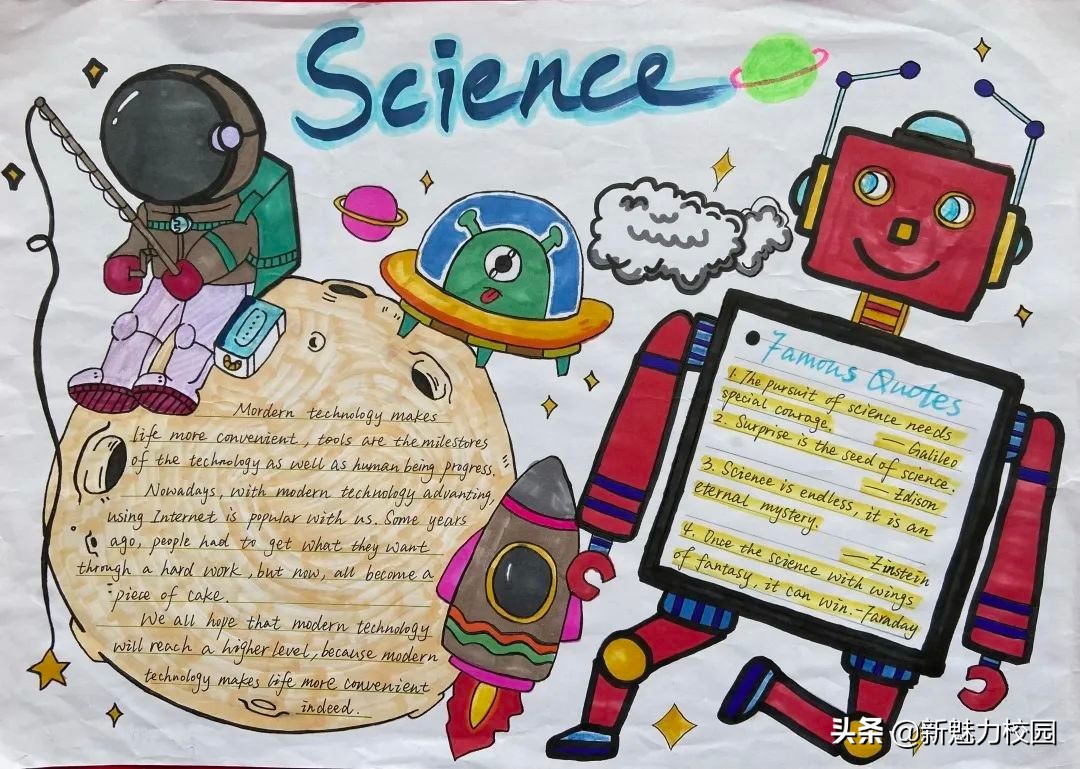 Science
Mordern technology makes
life more convenient, tools are the milestores
of the technology as well as human being progress.
Nowadays, with modern technology advanting,
using Internet is popular with us. Some years
ago, people had to get what they want
through a hard work, but now, all become a
piese of cake.
We all hope that modern technology
will reach a higher level, because modern
technology makes life more convenient
indeed.
Famous Quotes
1. The pursuit of science needs
special courage. —Galileo
2. Surprise is the seed of science.
—Edison
3. Science is endless, it is an
eternal mystery.
—Zinstein
4. Once the science with wings
of fantasy, it can win.-Faraday
头条 @新魅力校园